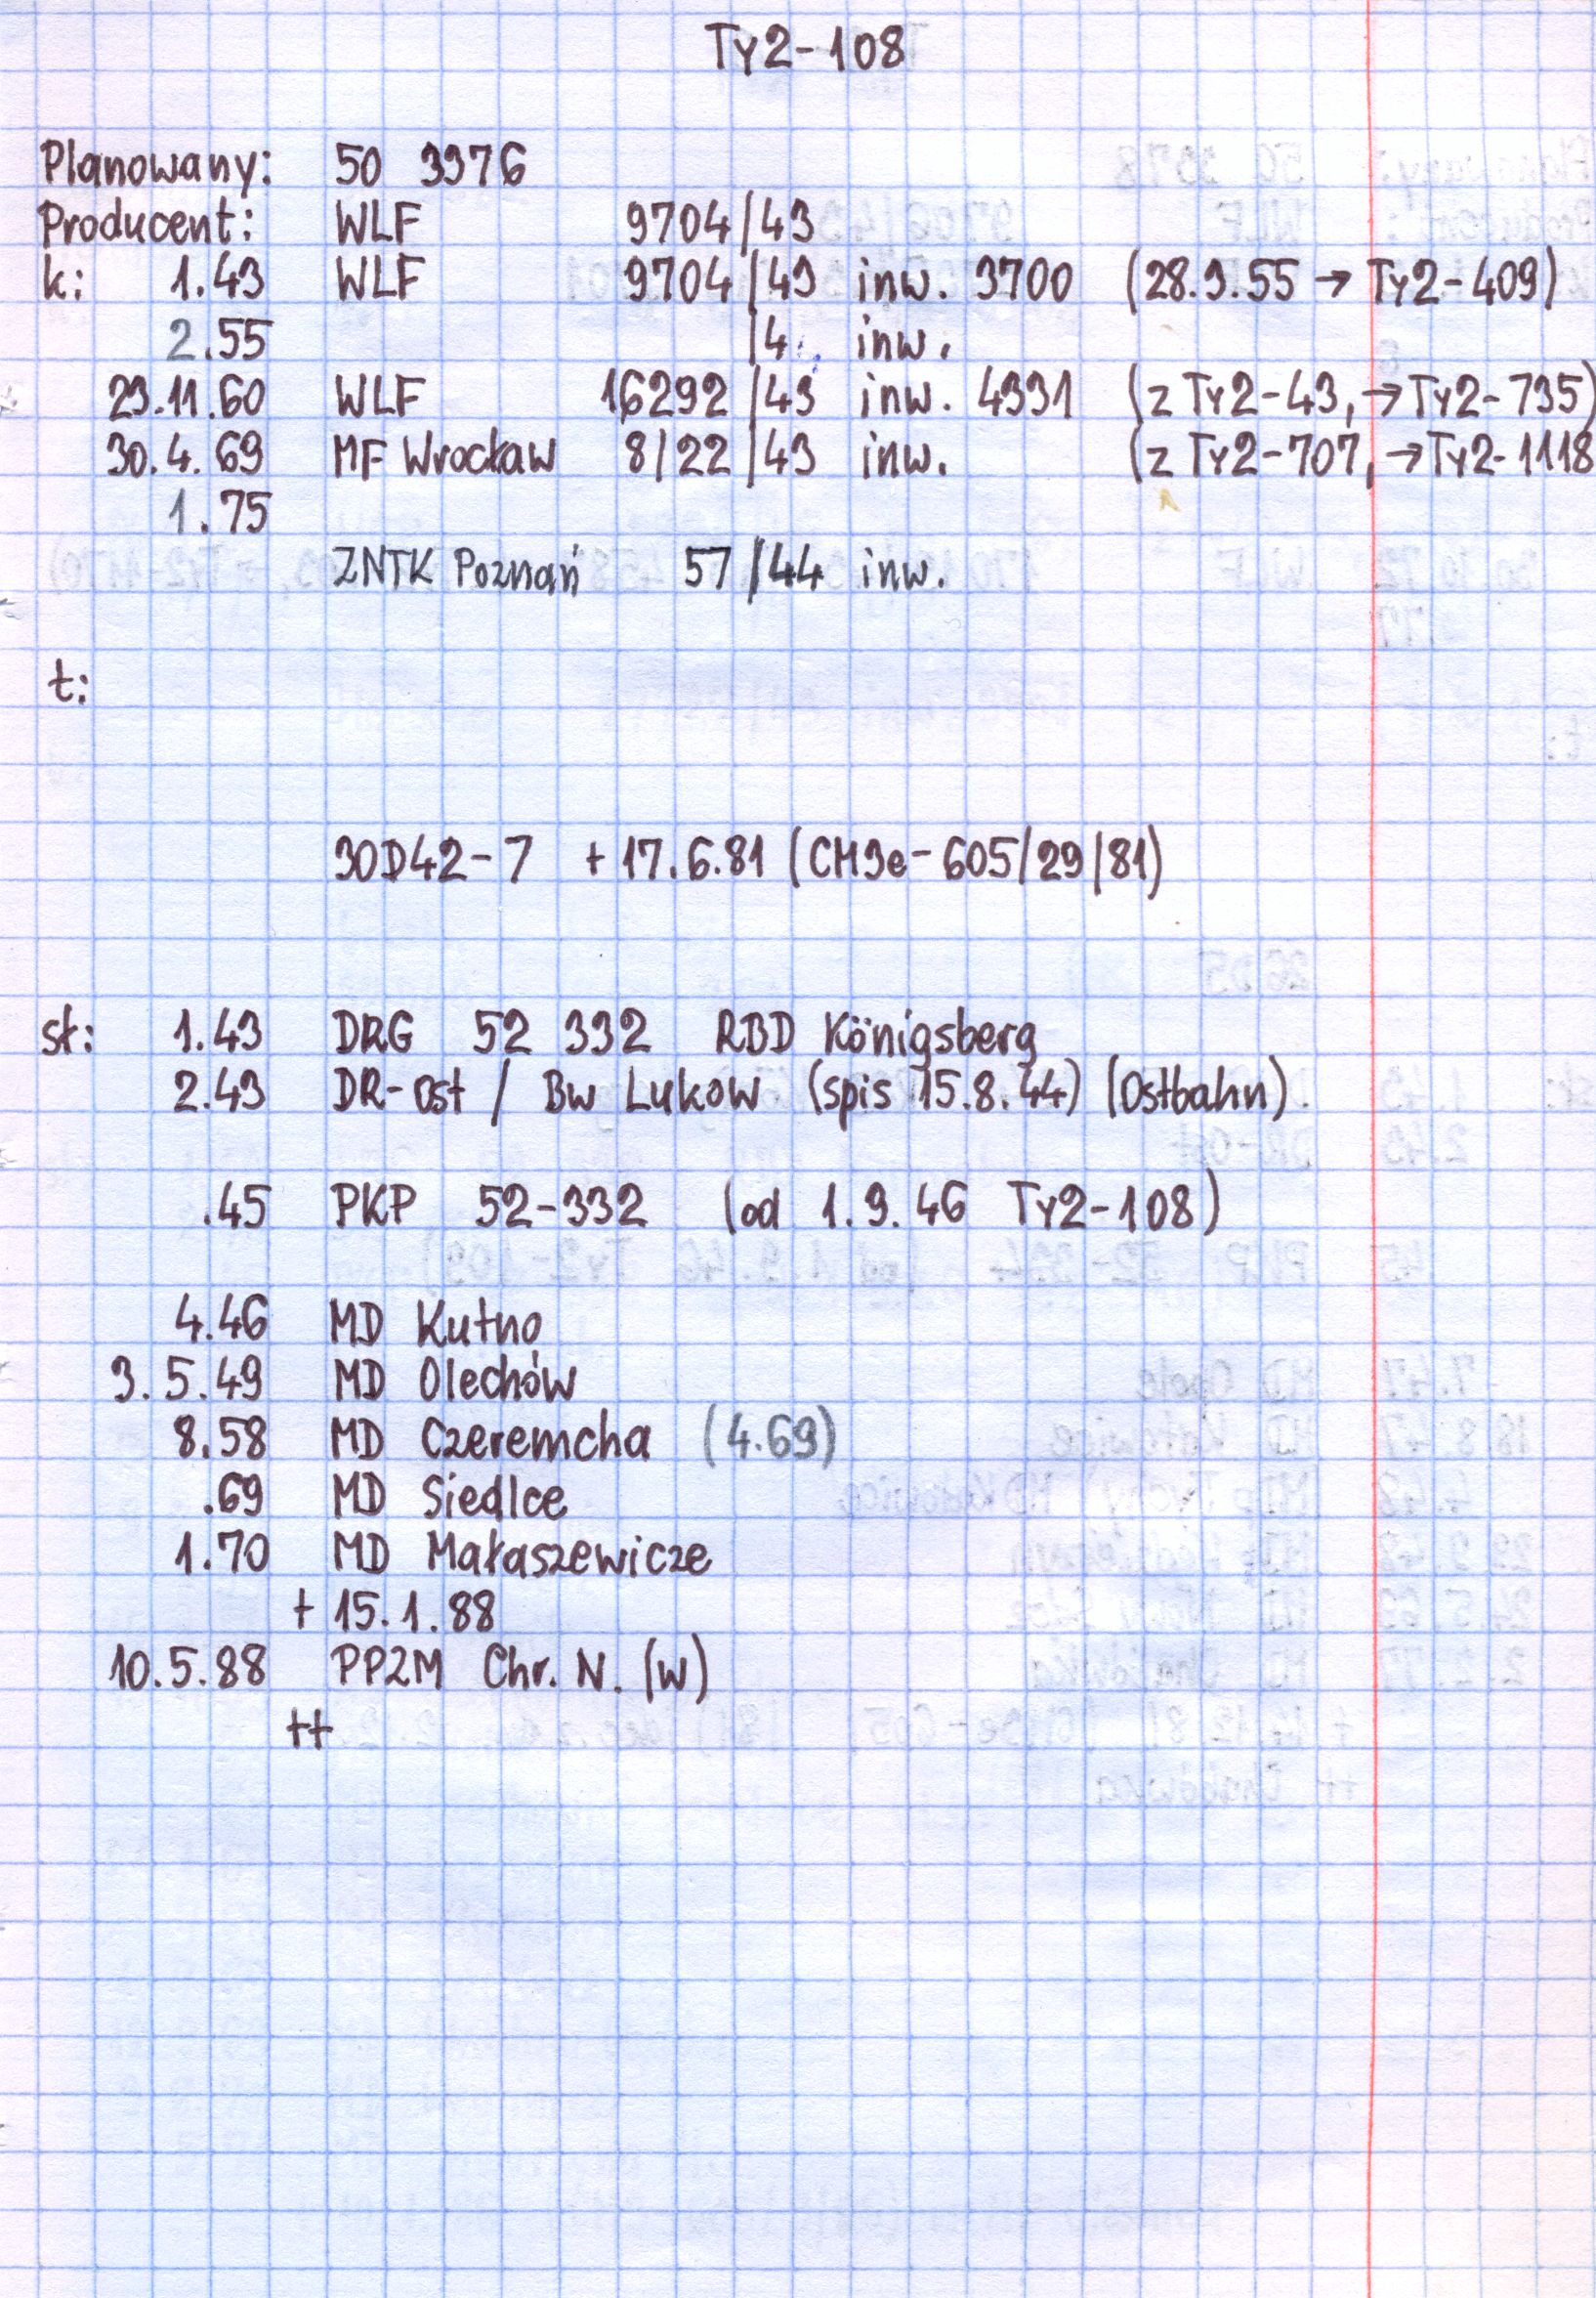 Ty2-108
Planowany: 50 3376
Producent: WLF 9704/43
k: 1.43 WLF 9704/43 inw. 3700 (28.9.55 → Ty2-409)
2.55 /4. inw.
29.11.60 WLF 16292/43 inw. 4331 (z Ty2-43, → Ty2-735)
30.4.69 MF Wrocław 8/22/43 inw. (z Ty2-707, → Ty2-1118
1.75
ZNTK Poznań 57/44 inw.
t:
30D42-7 + 17.6.81 (CM3e-605/29/81)
st: 1.43 DRG 52 332 RBD Königsberg
2.43 DR-Ost / Bw Lukow (spis 15.8.44) (Ostbahn).
.45 PKP 52-332 (od 1.9.46 Ty2-108)
4.46 MD Kutno
3.5.49 MD Olechów
8.58 MD Czeremcha (4.69)
.69 MD Siedlce
1.70 MD Małaszewicze
+ 15.1.88
10.5.88 PPZM Chr. N. (W)
++